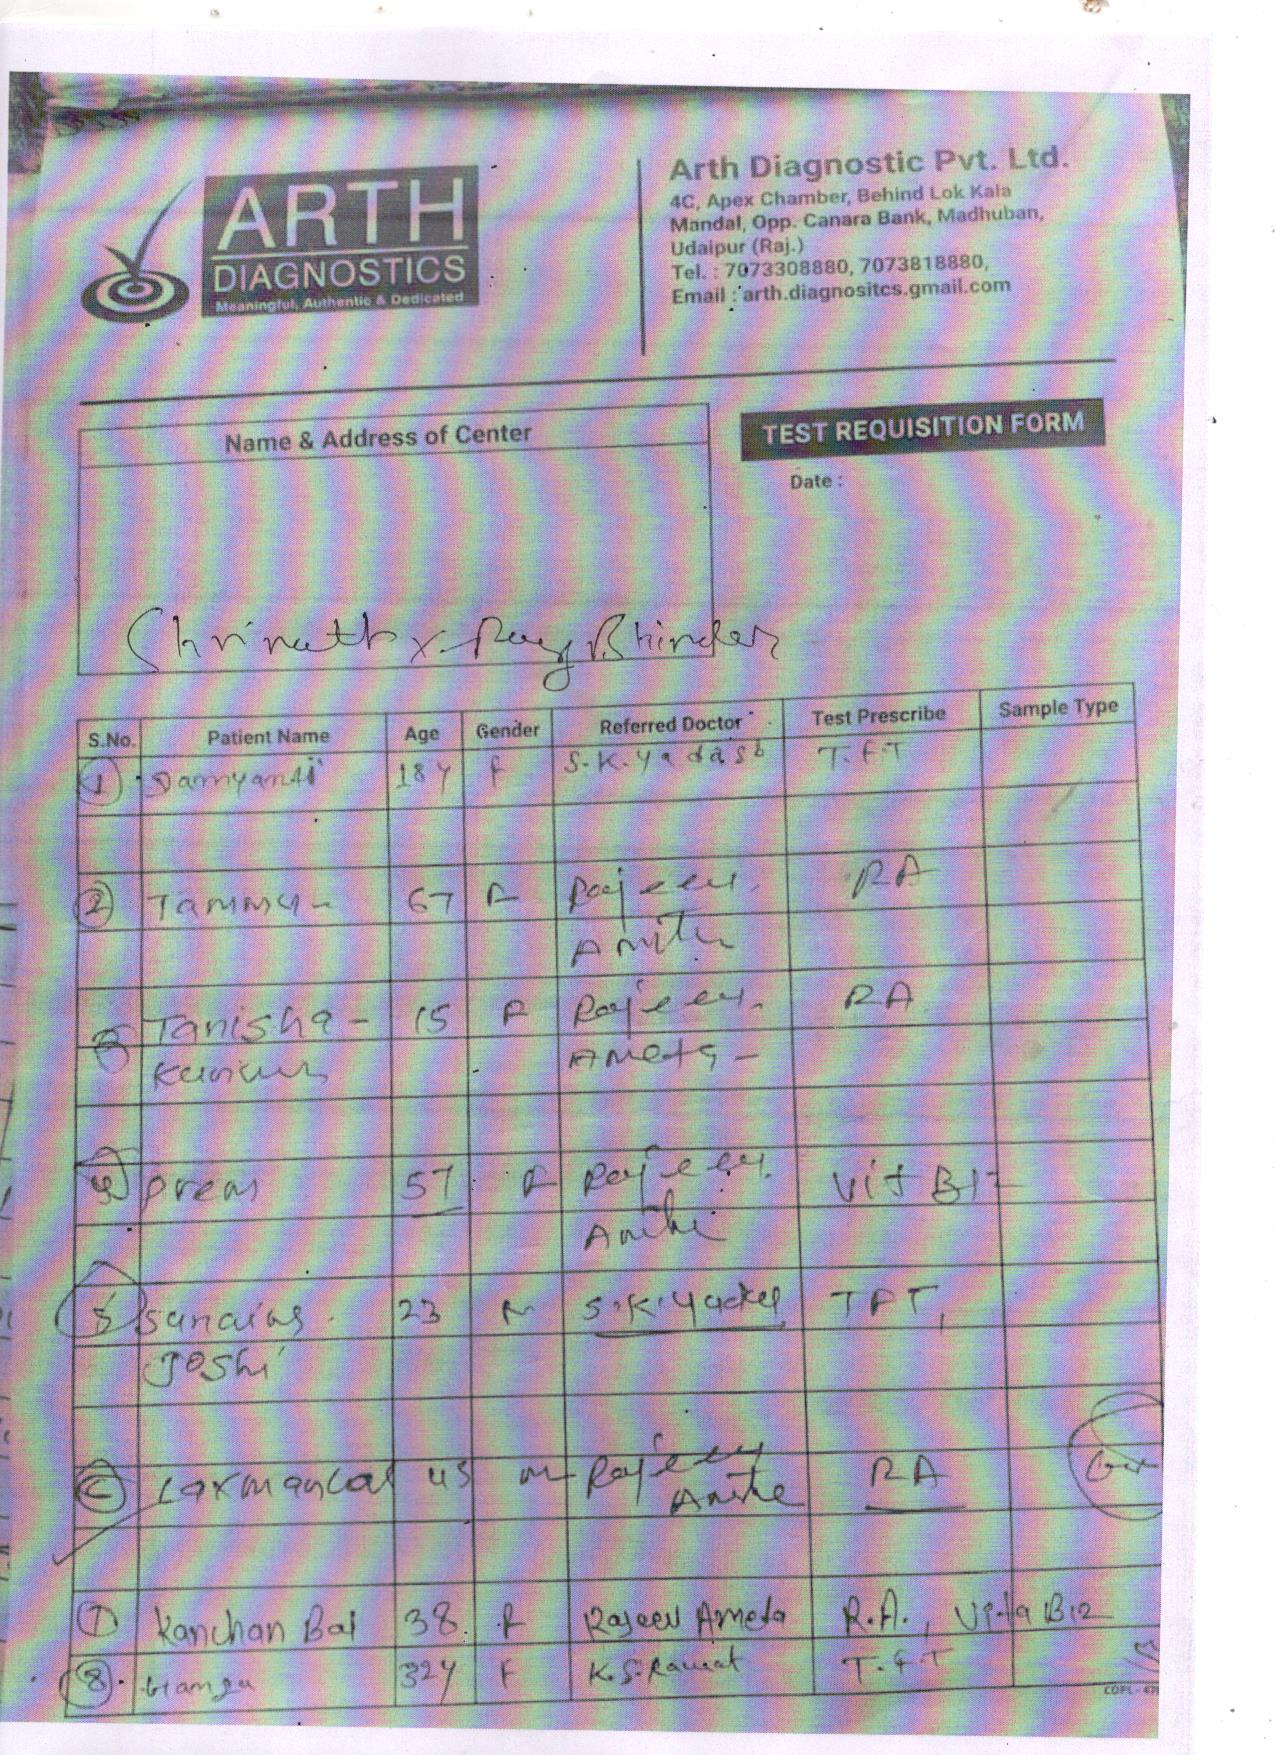 ARTH
DIAGNOSTICS
Meaningful, Authentic & Dedicated
Arth Diagnostic Pvt. Ltd.
4C, Apex Chamber, Behind Lok Kala
Mandal, Opp. Canara Bank, Madhuban,
Udaipur (Raj.)
Tel. : 7073308880, 7073818880,
Email : arth.diagnositcs.gmail.com
Name & Address of Center
TEST REQUISITION FORM
Date :
Shrinath X-Ray Bhinder
S.No. Patient Name Age Gender Referred Doctor Test Prescribe Sample Type
1 Damyanti 18Y F S.K. T.F.T
2 Tammu- 67 F Rajeev. RA
3 Tanisha- 15 F Rajeev. RA
Ameta-
4 prem 57 F Rajeev. Vit B12
5 23 M S.K. TFT,
Joshi
6 Laxmanlal 45 m Rajeev RA
7 Kanchan Bai 38 F Rajeev Ameta R.A., Vita B12
8 Ganga 32Y F K.S. Rawat T.F.T